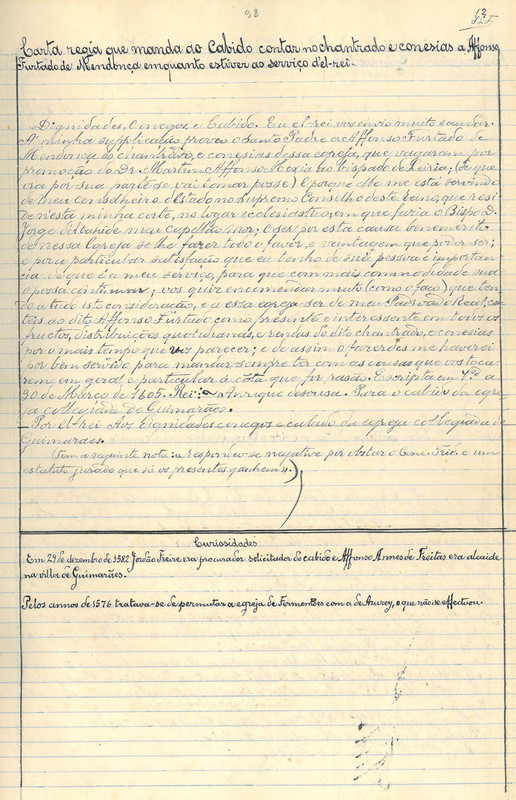 98
12
Carta regia que manda ao Cabido contar no chantrado e conesias a Affonso
Furtado de Mendonça emquanto estiver ao serviço d'el-rei.
Dignidades, Conegos, e Cabido. Eu el-rei vos envio muito saudar.
A minha supplicação proveu o Santo Padre a Affonso Furtado de
Mendonça do chantrado, e conesias dessa egreja, que vagaram por
promoção do Dr. Martim Affonso Mexia ao bispado de Leiria, (de que
ora por sua parte se vai tomar posse) E porque elle me está servindo
de meu conselheiro d'Estado no Supremo Conselho deste Reino, que resi
de nesta minha corte, no logar ecclesiastico, em que fazia o Bispo D.
Jorge de Ataide meu Capellão Mor; E ser por esta causa benemerito
de nessa Egreja se lhe fazer todo o favor, e vantagem que poder ser;
e pora particular satisfação que eu tenho de sua pessoa e importan
cia de que é a meu serviço, para que com mais commodidade sua
o possa continuar, vos quiz encomendar muito (como o faço) que ten
do a tudo isto consideração, e a essa egreja ser de meu Padroado Real, con
teis ao dito Affonso Furtado como presente e interessente em todos os
fructos, distribuições quotidianas, e rendas do dito chantrado, e conesias
por o mais tempo que vos parecer; e de assim o fazerdes me haverei
por bem servido para mandar sempre ter com as cousas que vos toca
rem em geral e particular á cota que fôr rasão. Escripta em
30 de Março de 1605. Rei: Anrique de Sousa. Para o cabido da egre
ja collegiada de Guimarães.
Por el-rei Aos Dignidades conegos e cabido da egreja collegiada de
Guimarães.
Tem a seguinte nota: « Respondeu-se negative por obstar o Conc. Trid. e um
estatuto jurado que só os presentes ganhem».)
Curiosidades
Em 29 de dezembro de 1582 Jordão Freire era procurador solicitador do cabido e Affonso Annes de Freitas era alcaide
na villa de Guimarães.
Pelos annos de 1576 tratava-se de permutar a egreja de Fermentões com a de Azurey, o que não se effectuou.